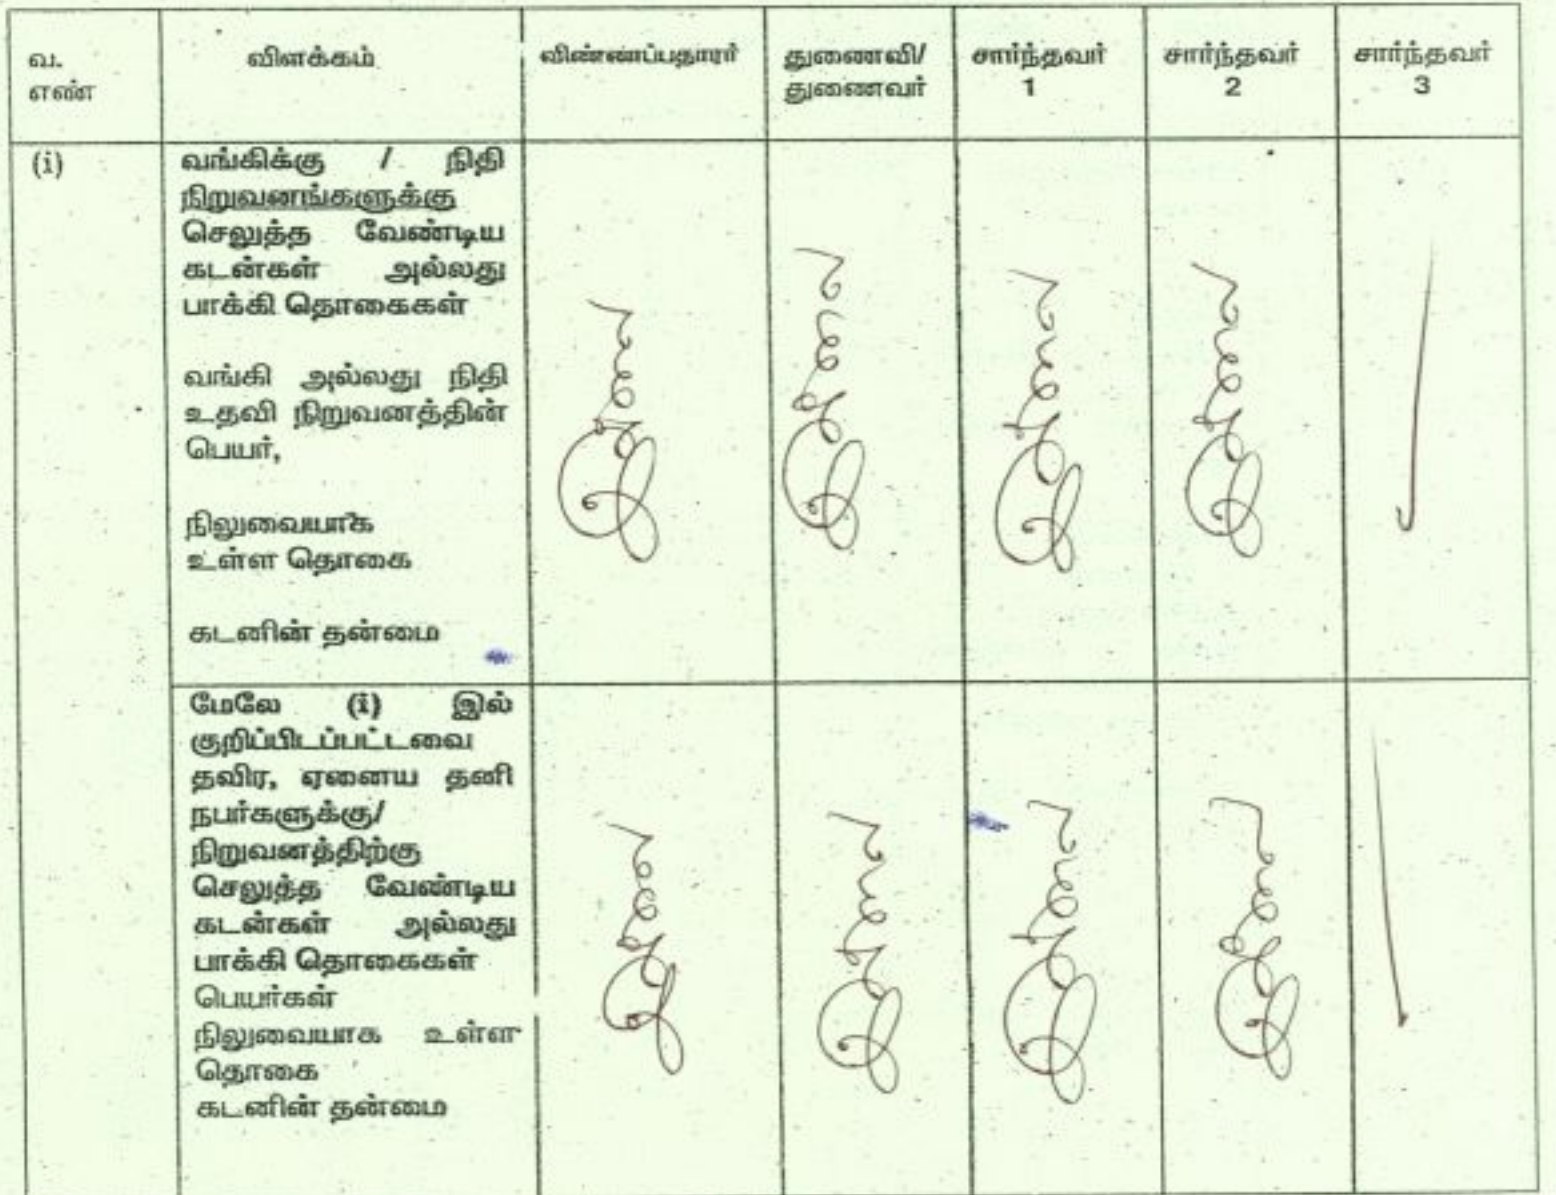 வ.
எண்
விளக்கம்
விண்ணப்பதாரர்
துணைவி/
துணைவர்
சார்ந்தவர்
1
சார்ந்தவர்
2
சார்ந்தவர்
3
(i)
வங்கிக்கு / நிதி
நிறுவனங்களுக்கு
செலுத்த வேண்டிய
கடன்கள் அல்லது
பாக்கி தொகைகள்
வங்கி அல்லது நிதி
உதவி நிறுவனத்தின்
பெயர்,
நிலுவையாக
உள்ள தொகை
கடனின் தன்மை
மேலே (i) இல்
குறிப்பிடப்பட்டவை
தவிர, ஏனைய தனி
நபர்களுக்கு/
நிறுவனத்திற்கு
செலுத்த வேண்டிய
கடன்கள் அல்லது
பாக்கி தொகைகள்
பெயர்கள்
நிலுவையாக உள்ள
தொகை
கடனின் தன்மை